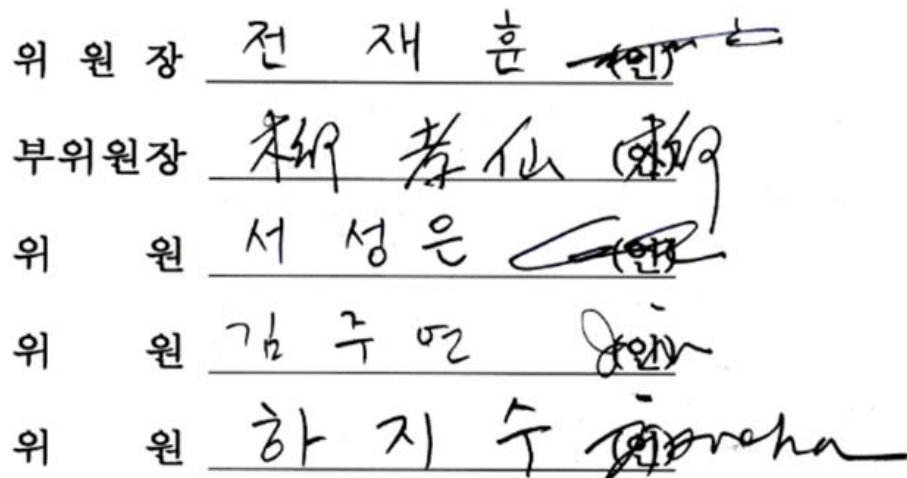 위 원 장 전 재 훈 (인)
부위원장 柳 孝 仙 (인)
위 원 서 성 은 (인)
위 원 김 주 연 (인)
위 원 하 지 수 (인)